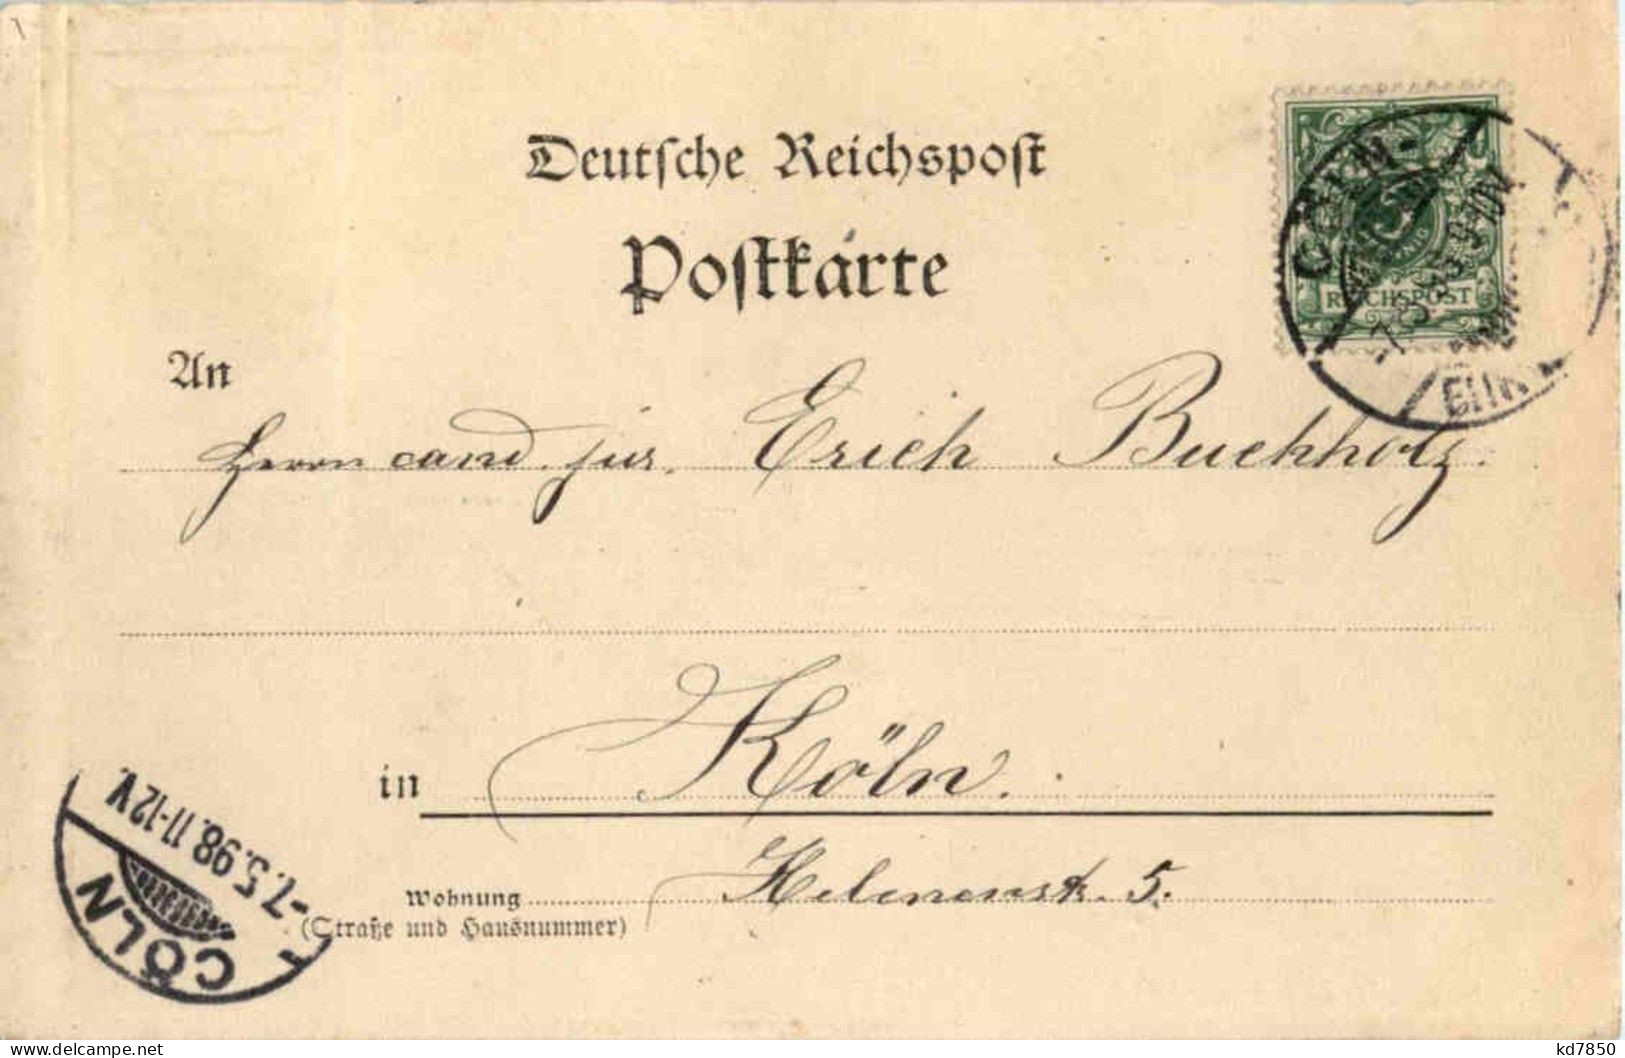 Deutsche Reichspost
Postkarte
CÖLN-
REICHSPOST
An
Herrn cand. jur. Erich Buchholz.
in Köln.
Wohnung Helenenstr. 5.
(Straße und Hausnummer)
CÖLN
-7.5.98.11-12V.
kd7850